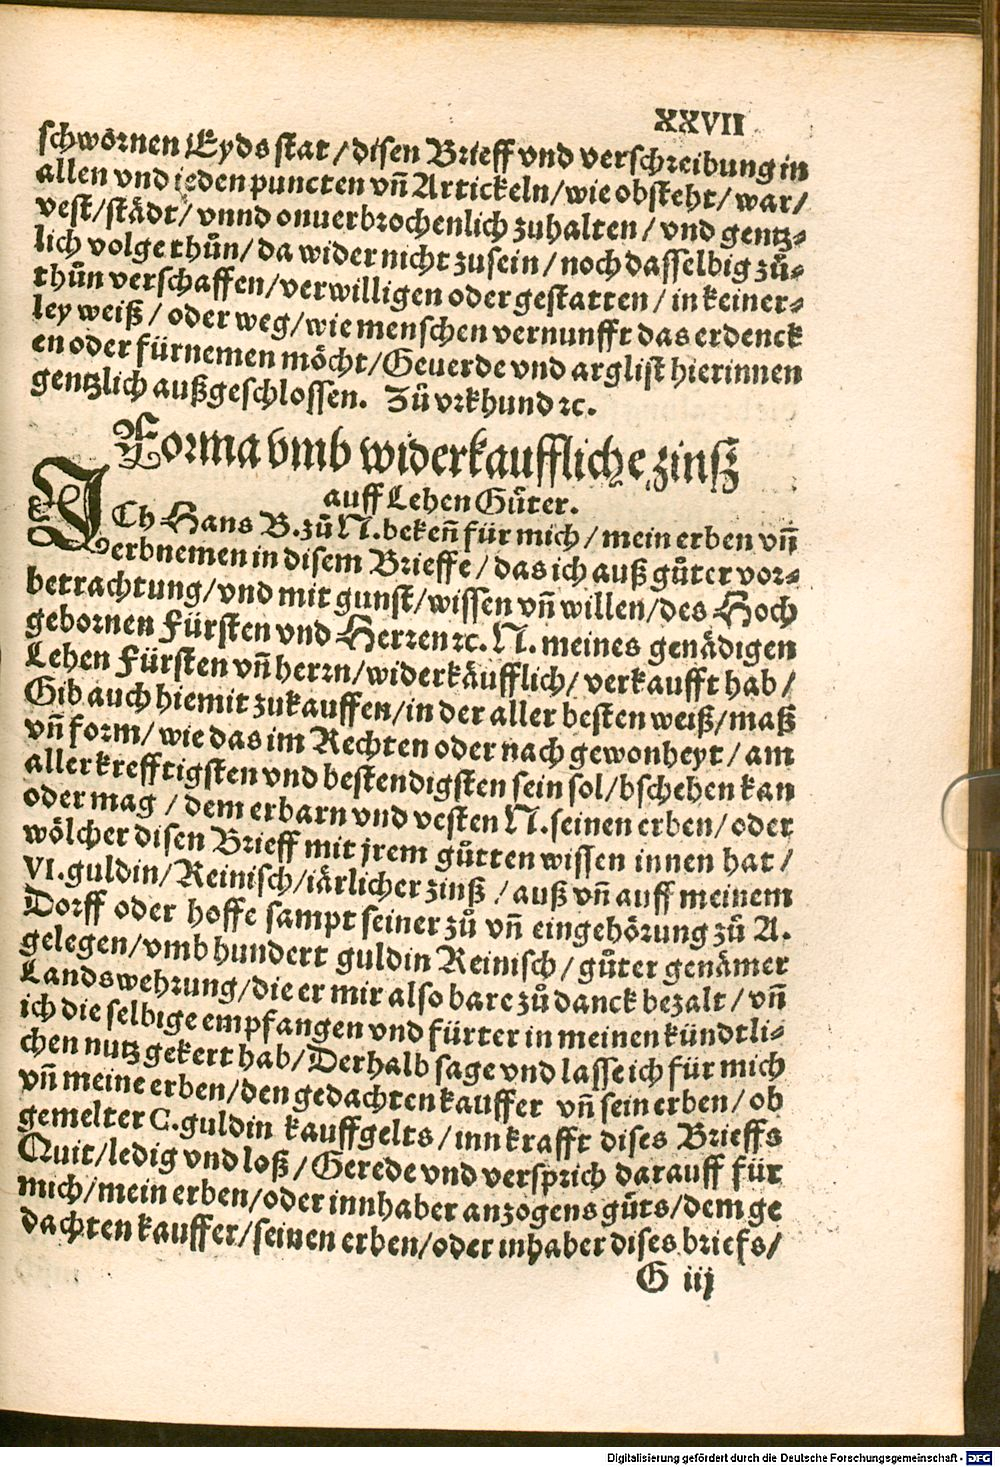 XXVII
schwörnen Eyds stat / disen Brieff vnd verschreibung in
allen vnd jeden puncten vñ Artickeln/wie obsteht/ war/
vest/städt/ vnnd onuerbrochenlich zuhalten / vnd gentz-
lich volge thůn/ da wider nicht zusein / noch dasselbig zů-
thůn verschaffen/verwilligen oder gestatten / in keiner-
ley weiß / oder weg/wie menschen vernunfft das erdenck
en oder fürnemen möcht/Geuerde vnd arglist hierinnen
gentzlich außgeschlossen. Zů vrkhund ꝛc.
Forma vmb widerkauffliche zinß
auff Lehen Gůter.
ICh Hans B. zů N. bekeñ für mich / mein erben vñ
erbnemen in disem Brieffe / das ich auß gůter vor-
betrachtung/vnd mit gunst/wissen vñ willen/des Hoch
gebornen Fürsten vnd Herren ꝛc. N. meines genädigen
Lehen Fürsten vñ herrn/widerkäufflich/ verkaufft hab /
Gib auch hiemit zukauffen/in der aller besten weiß/maß
vñ form/ wie das im Rechten oder nach gewonheyt / am
allerkrefftigsten vnd bestendigsten sein sol/bschehen kan
oder mag / dem erbarn vnd vesten N. seinen erben/ oder
wölcher disen Brieff mit jrem gůtten wissen innen hat /
VI. guldin/ Reinisch/iärlicher zinß / auß vñ auff meinem
Dorff oder hoffe sampt seiner zů vñ eingehörung zů A.
gelegen/vmb hundert guldin Reinisch / gůter genämer
Landswehrung/die er mir also bare zů danck bezalt / vñ
ich die selbige empfangen vnd fürter in meinen kündtli-
chen nutz gekert hab/ Derhalb sage vnd lasse ich für mich
vñ meine erben/den gedachten kauffer vñ sein erben/ ob
gemelter C. guldin kauffgelts / inn krafft dises Brieffs
Quit/ledig vnd loß / Gerede vnd versprich darauff für
mich/mein erben/oder innhaber anzogens gůts/dem ge
dachten kauffer/seinen erben/oder inhaber dises briefs/
G iij
Digitalisierung gefördert durch die Deutsche Forschungsgemeinschaft - DFG